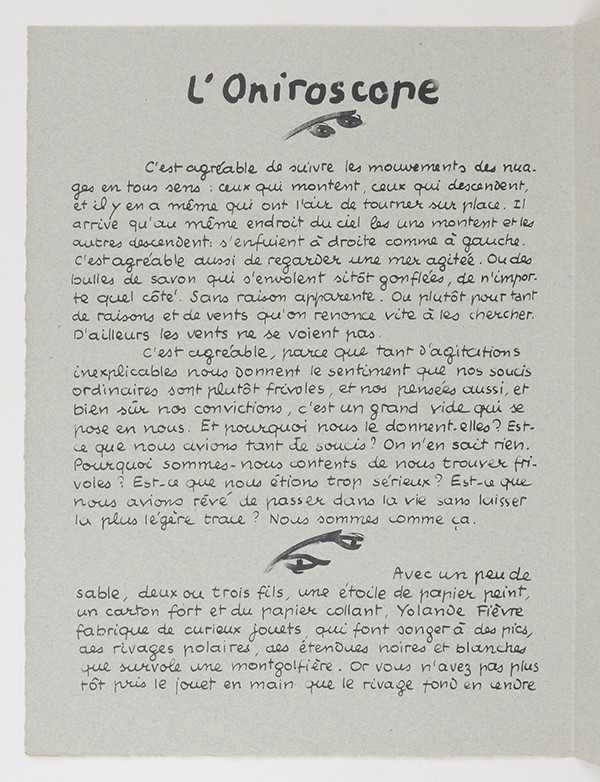 L'Oniroscope
C'est agréable de suivre les mouvements des nua-
ges en tous sens : ceux qui montent, ceux qui descendent,
et il y en a même qui ont l'air de tourner sur place. Il
arrive qu'au même endroit du ciel les uns montent et les
autres descendent: s'enfuient à droite comme à gauche.
C'est agréable aussi de regarder une mer agitée. Ou des
bulles de savon qui s'envolent sitôt gonflées, de n'impor-
te quel côté. Sans raison apparente. Ou plutôt pour tant
de raisons et de vents qu'on renonce vite à les chercher.
D'ailleurs les vents ne se voient pas.
C'est agréable, parce que tant d'agitations
inexplicables nous donnent le sentiment que nos soucis
ordinaires sont plutôt frivoles, et nos pensées aussi, et
bien sûr nos convictions, c'est un grand vide qui se
pose en nous. Et pourquoi nous le donnent-elles? Est-
ce que nous avions tant de soucis? On n'en sait rien.
Pourquoi sommes-nous contents de nous trouver fri-
voles? Est-ce que nous étions trop sérieux? Est-ce que
nous avions rêvé de passer dans la vie sans laisser
la plus légère trace? Nous sommes comme ça.
Avec un peu de
sable, deux ou trois fils, une étoile de papier peint,
un carton fort et du papier collant, Yolande Fièvre
fabrique de curieux jouets, qui font songer à des pics,
des rivages polaires, des étendues noires et blanches
que survole une montgolfière. Or vous n'avez pas plus
tôt pris le jouet en main que le rivage fond en cendre